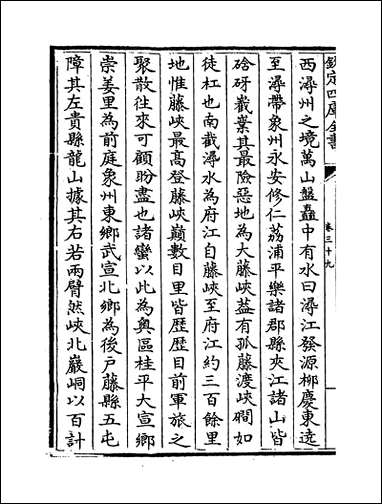 欽定四庫全書
卷三十九
西潯州之境萬山盤矗中有水曰潯江發源柳慶東遶
至潯帶象州永安修仁荔浦平樂諸郡縣夾江諸山皆
硲砑巀嶪其最險惡地為大藤峽葢有孤藤渡峽磵如
徒杠也南截潯水為府江自藤峽至府江約三百餘里
地惟藤峽最髙登藤峽巔數目里皆歴歴目前軍旅之
聚散往來可顧盼盡也諸蠻以此為奥區桂平大宣鄉
崇姜里為前庭象州東鄉武宣北鄉為後户藤縣五屯
障其左貴縣龍山據其右若兩臂然峽北巖峒以百計